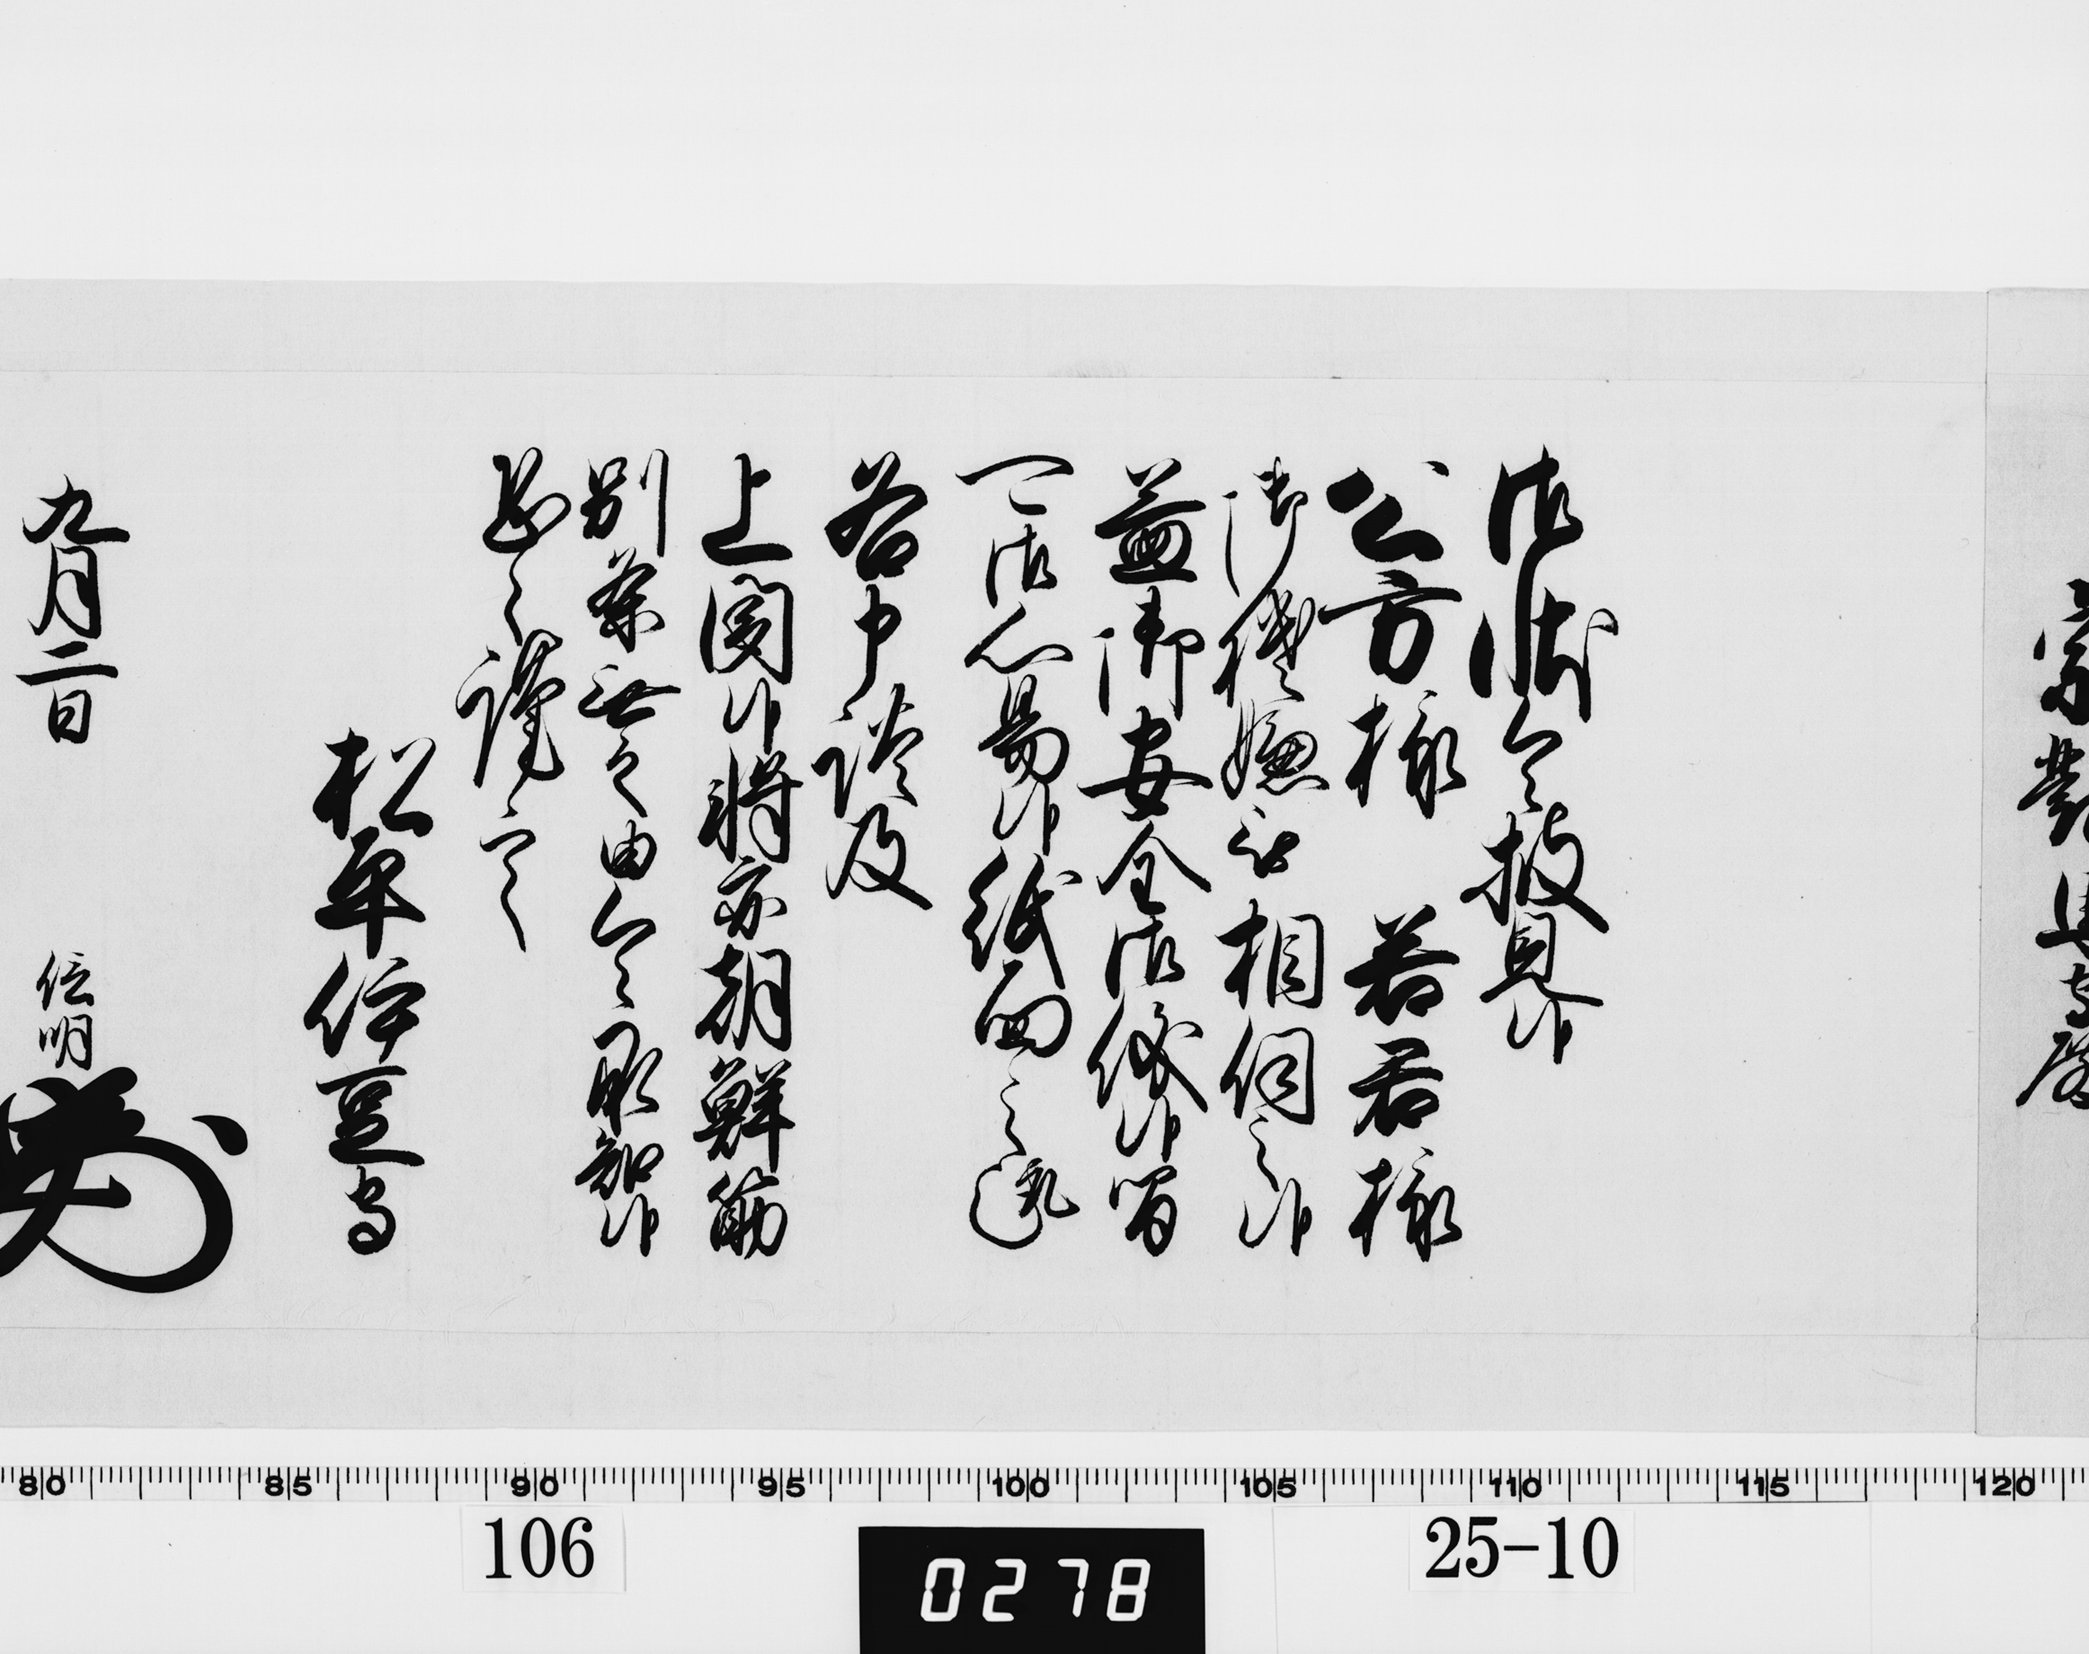 宗對馬守殿
御状令披見候
公方様 若君様
御機嫌被相伺之候
益御安全御儀候間
可御心易候紙面之趣
各申談及
上聞候将亦朝鮮筋
別条無之由令承知候
恐々謹言
松平伊豆守
九月二日 信明
80 85 90 95 100 105 110 115 120
106 0278 25-10